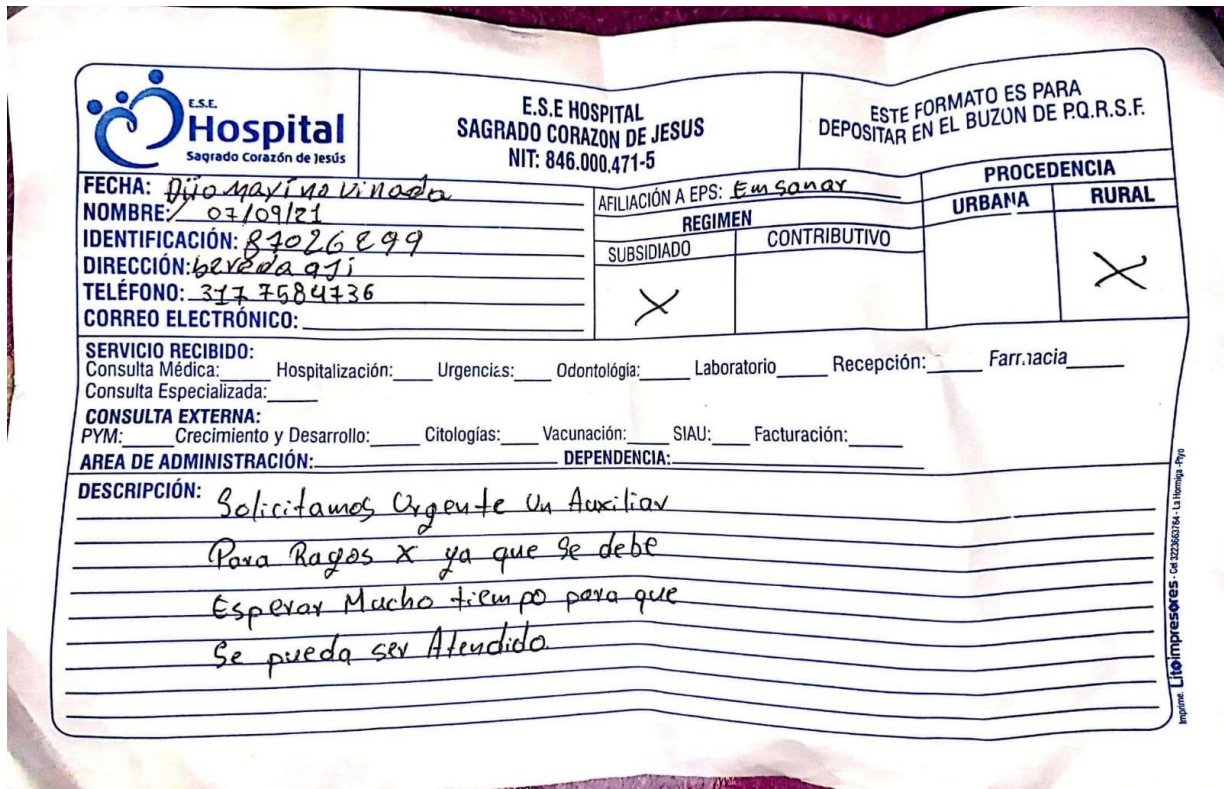 E.S.E.
Hospital
Sagrado Corazón de Jesús
E.S.E HOSPITAL
SAGRADO CORAZON DE JESUS
NIT: 846.000.471-5
ESTE FORMATO ES PARA
DEPOSITAR EN EL BUZON DE P.Q.R.S.F.
FECHA:
NOMBRE: 07/09/21
IDENTIFICACIÓN: 87026899
DIRECCIÓN: bereda aji
TELÉFONO: 317 7584736
CORREO ELECTRÓNICO:
AFILIACIÓN A EPS: Emsanar
REGIMEN
SUBSIDIADO CONTRIBUTIVO
X
PROCEDENCIA
URBANA RURAL
X
SERVICIO RECIBIDO:
Consulta Médica: Hospitalización: Urgencias: Odontológia: Laboratorio Recepción: Farmacia
Consulta Especializada:
CONSULTA EXTERNA:
PYM: Crecimiento y Desarrollo: Citologías: Vacunación: SIAU: Facturación:
AREA DE ADMINISTRACIÓN: DEPENDENCIA:
DESCRIPCIÓN: Solicitamos Urgente Un Auxiliar
Para Rayos X ya que se debe
Esperar Mucho tiempo para que
Se pueda ser Atendido.
Imprime. Litoimpresores - Cel 3223663764 - La Hormiga -Ptyo